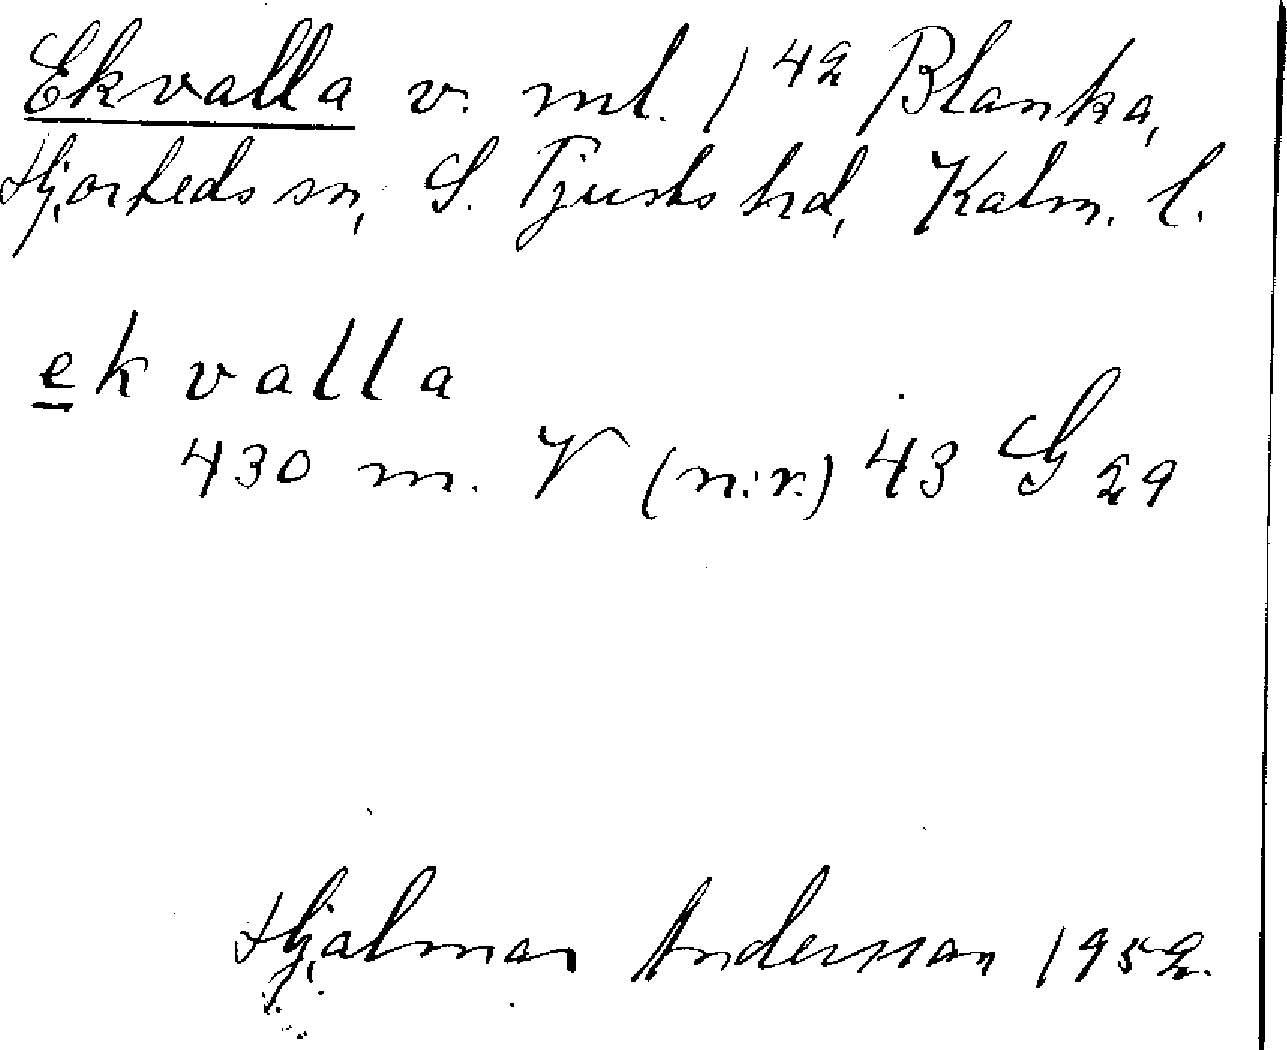 Ekvalla v. ml. 1 42 Blanka,
Hjorteds sn, S. Tjusts hd, Kalm. l.
ekvalla
430 m. V (n:r.) 43 G 29
Hjalmar Andersson 1952.